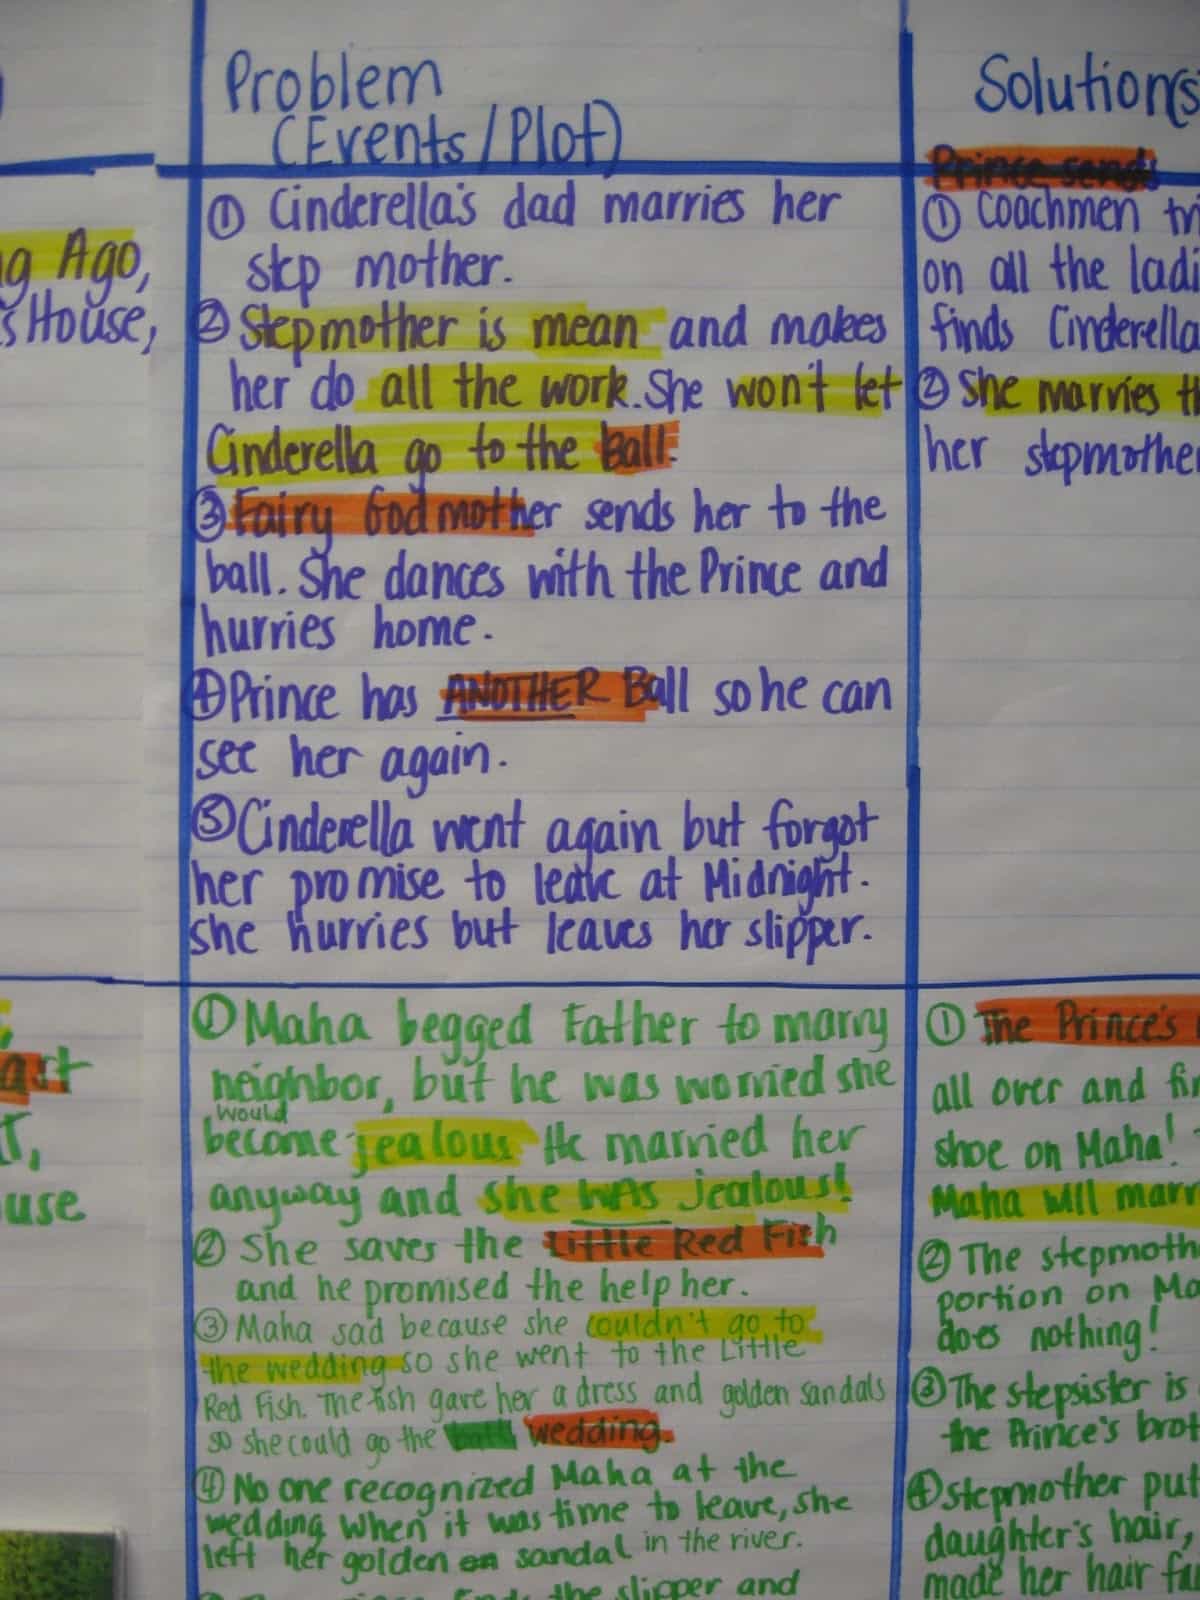 Problem
(Events/Plot)
Solution(s
ng Ago,
s House,
① Cinderella's dad marries her
step mother.
② Stepmother is mean and makes
her do all the work. She won't let
Cinderella go to the Ball.
③ Fairy Godmother sends her to the
ball. She dances with the Prince and
hurries home.
④ Prince has ANOTHER Ball so he can
see her again.
⑤ Cinderella went again but forgot
her promise to leave at Midnight.
she hurries but leaves her slipper.
Prince sends
① Coachmen tri
on all the ladi
finds Cinderella
② She marries th
her stepmother
art
use
① Maha begged Father to marry
neighbor, but he was worried she
would
become jealous He married her
anyway and she was jealous!
② She saves the Little Red Fish
and he promised the help her.
③ Maha sad because she couldn't go to
the wedding so she went to the Little
Red Fish. The fish gave her a dress and golden sandals
so she could go the ball wedding.
④ No one recognized Maha at the
wedding when it was time to leave, she
left her golden sandal in the river.
the slipper and
① The Prince's
all over and fin
shoe on Maha!
Maha will marr
② The stepmoth
portion on Ma
does nothing!
③ The stepsister is
the Prince's brot
④ stepmother put
daughter's hair,
made her hair fa